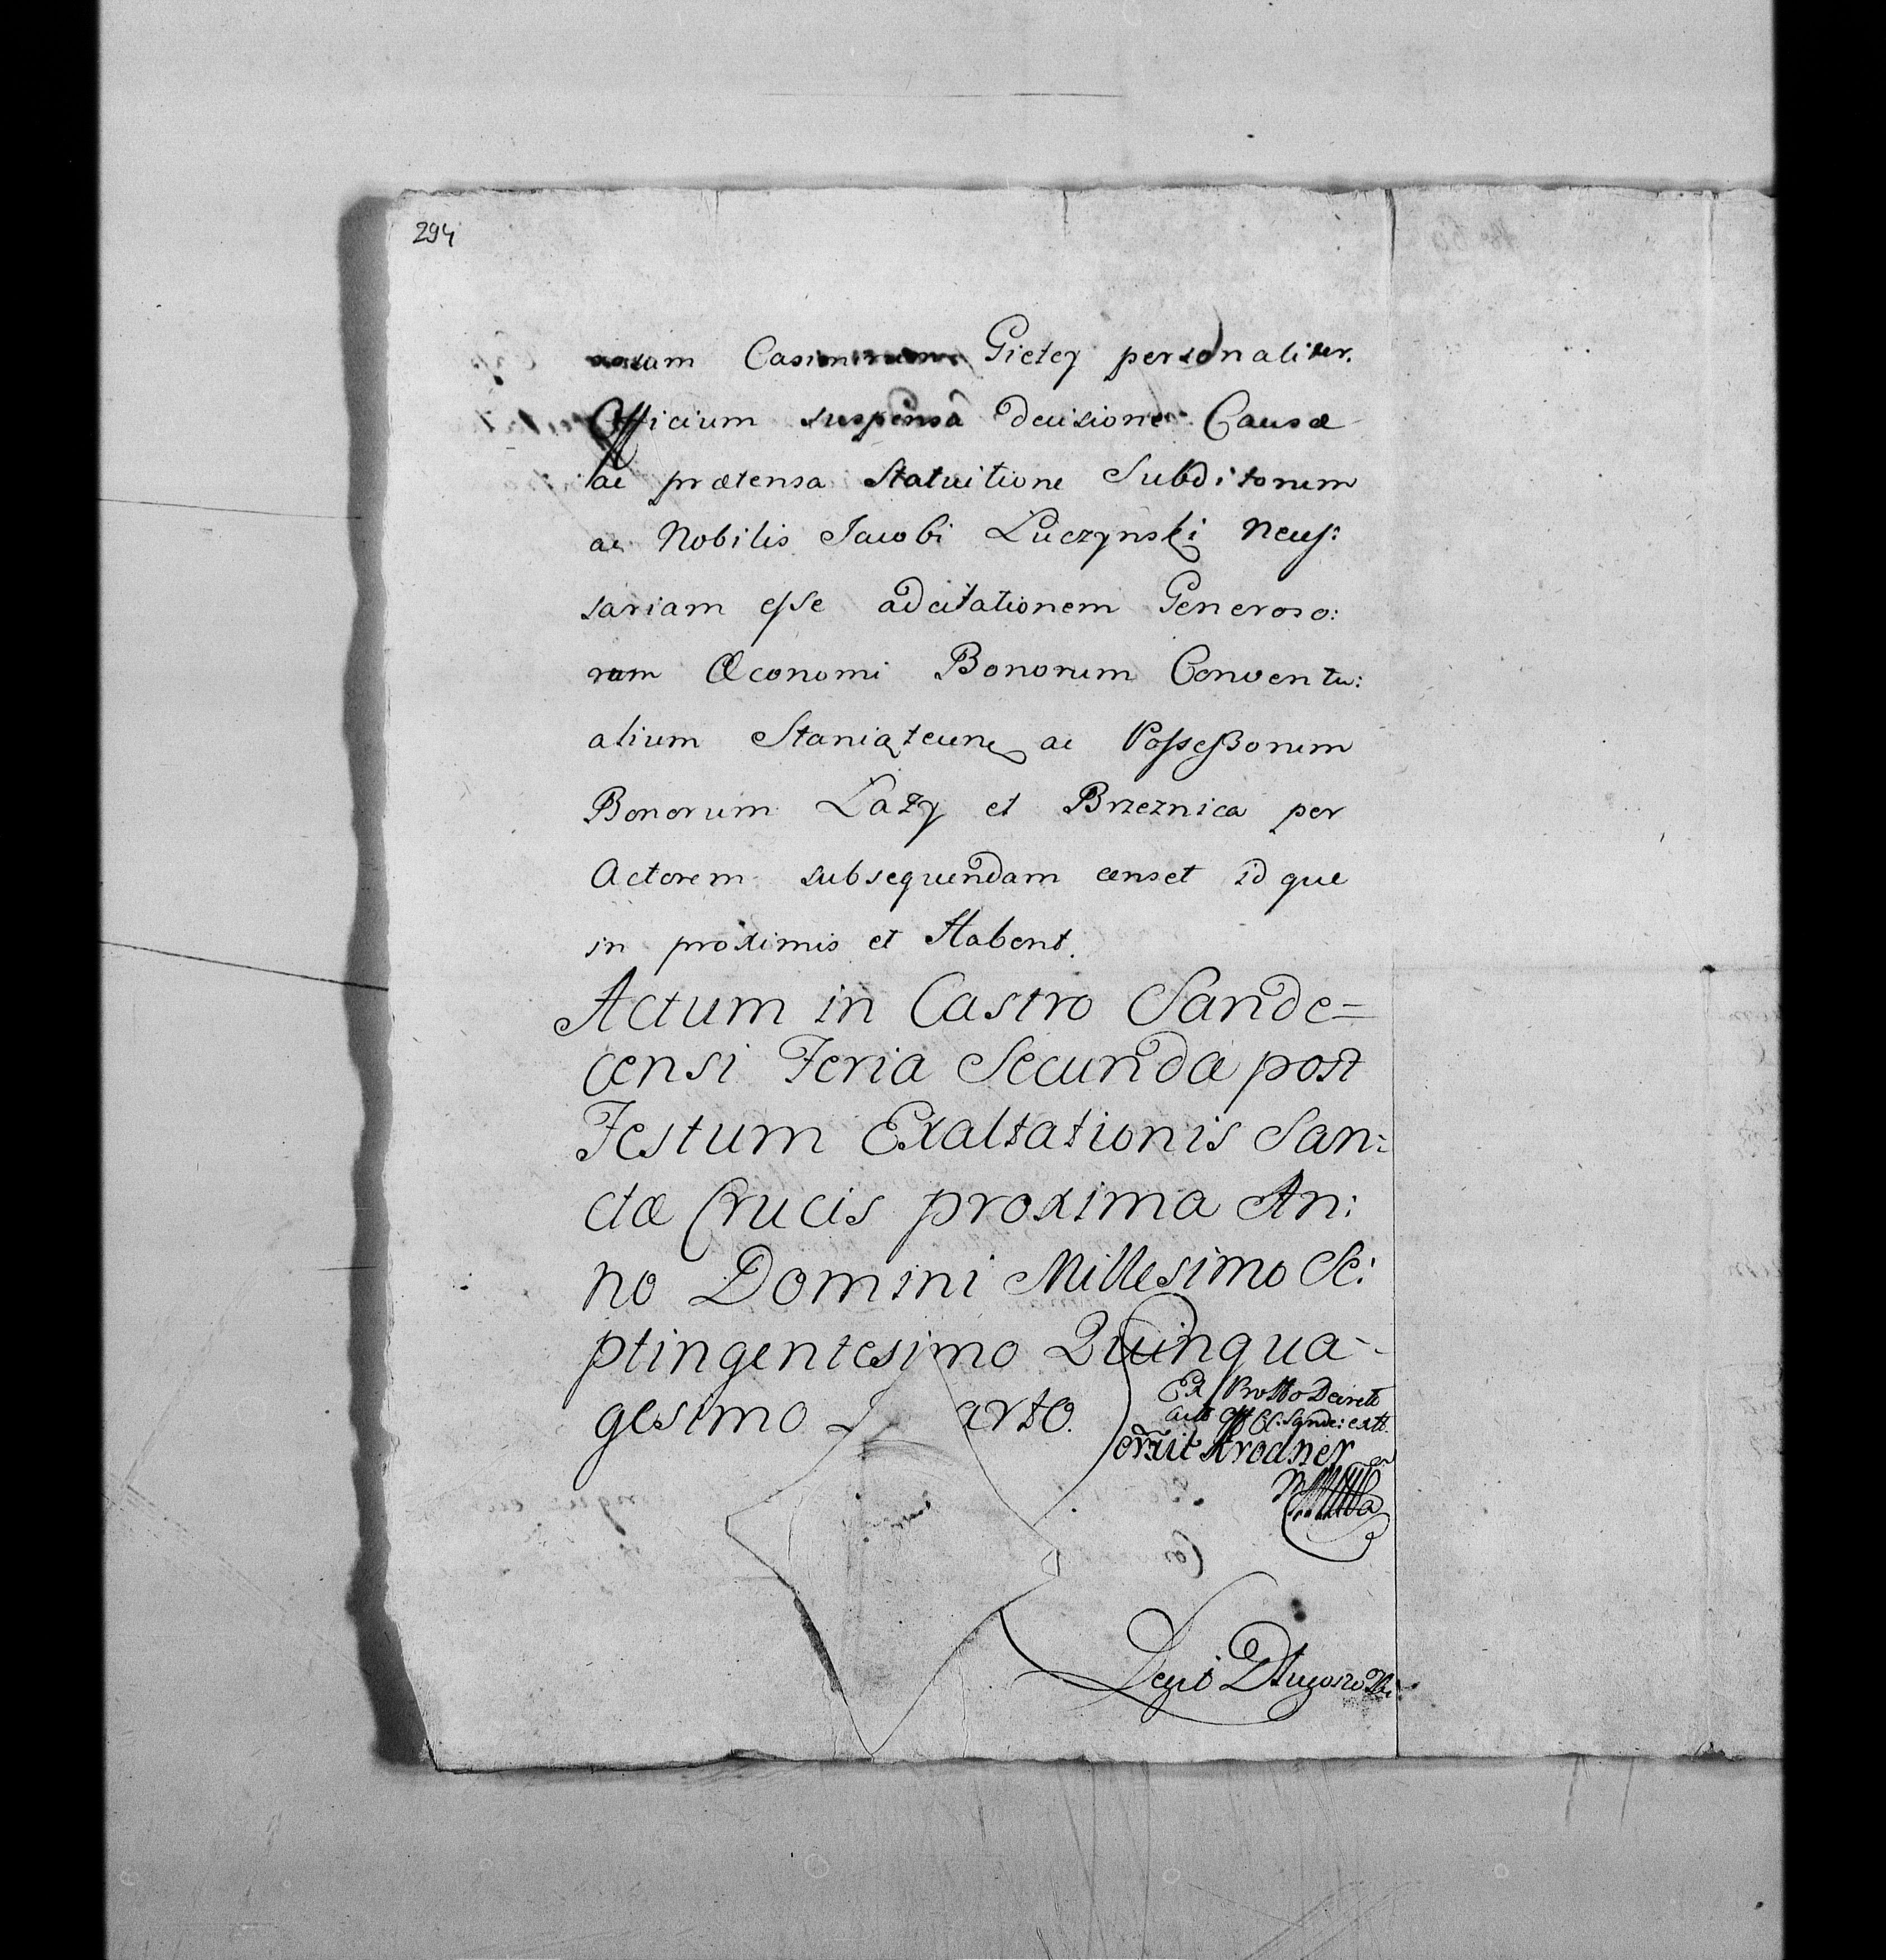 294
Casimirum Gietey personaliter.
Officium suspensa decisione Causæ
ac prætensa Statuitione Subditorum
ac Nobilis Jacobi Łuczynski Necess:
sariam esse adcitationem Generoso:
rum Œconomi Bonorum Conventu:
alium Staniątecen ac Possessorum
Bonorum Łazy et Brzeznica per
Actorem subsequendam censet id que
in proximis et Habent.
Actum in Castro Sande=
censi Feria Secunda post
Festum Exaltationis San:
ctæ Crucis proxima An:
no Domini Millesimo Se:
ptingentesimo Quinqua-
gesimo arto.
Ex Decreto
extt.
Legit Długoszowski